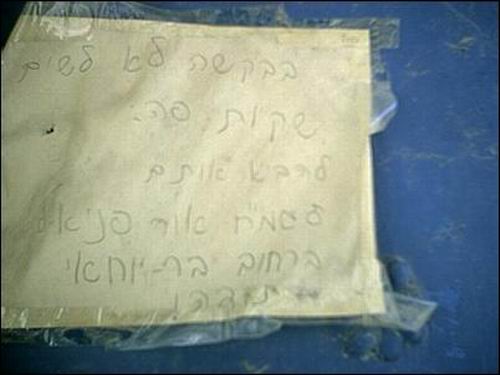 בבקשה לא לשים
שקות פה.
להבא אותם
לגמ"ח אור פניאל
ברחוב בר-יוחאי
תודה!